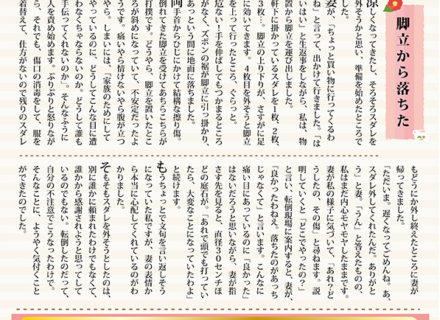 脚立から落ちた
涼しくなってきたし、そろそろスダレを
外そうかと思い、準備を始めたところで
した。
妻が、「ちょっと買い物に行ってくるわ
ね」と言って、出かけて行きました。「は
いはい」と生返事をしながら、私は、物
置から脚立を運び出しました。
軒下に掛かっているスダレを1枚、2枚、
3枚…。脚立の上り下りが、さすがに足
に効いてきます。4枚目を外そうと脚立
を上って行ったところ、ぐらっと。
危ない!手を伸ばしてもつかまるところ
がなく、ズボンの裾が脚立に引っ掛かり、
あっという間に地面に落ちました。
両手首からひじにかけて結構な擦り傷。
倒れてきた脚立を受けてあちらこちらが
打撲です。どうやら、脚立を置いたとこ
ろが斜めになっていて、不安定だったよ
うです。痛いやら情けないやら腹が立つ
やら。しまいには、「家族のためにして
やっているのに、どうしてこんな目に遭
わなくちゃならないのか。どうして誰も
手伝ってくれないのか」。そんなふうに
人を責め始めます。ぶつぶつと怒りなが
ら、それでも、傷口の消毒をして、服を
着替えて、仕方がないので残りのスダレ
もどうにか外し終えたところに妻が
帰ってきました。
「ただいま。遅くなってごめんね。あ、
スダレ外してくれたんだ。ありがと
う」と妻。「うん」と答えたものの、
私はまだ内心モヤモヤしたままです。
妻が私の様子に気づいて、「あれ?ど
うしたの、その傷」と尋ねます。説
明していくと「どこでやったの?」
と言い、転倒現場に案内すると、妻が、
「良かったわねえ。落ちたのがあっち
じゃなくて」と言います。こんなに
痛い目にあっているのに「良かった」
はないだろうと思いながら、妻が指
さす先を見ると、直径30センチほ
どの庭石が。「あれで頭でも打ってい
たら、大変なことになっていたわよ」
と続けます。
もうちょっとで文句を言い返しそう
になっていた私ですが、妻の表情か
ら本当に心配してくれているのがわ
かりました。
そもそもスダレを外そうとしたのは、
別に誰かに頼まれたわけでもなくて、
誰かから感謝されようと思ってして
いるのでもない。転倒したのだって、
自分の不注意でこうなったわけで。
そんなことに、ようやく気付くこと
ができたのでした。